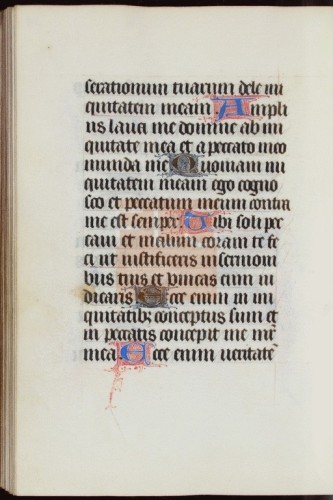 serationum tuarum dele ini
quitatem meam Ampli
us laua me domine ab ini
quitate mea et a peccato meo
munda me Quoniam ini
quitatem meam ego cogno
sco et peccatum meum contra
me est semper Tibi soli pec
caui et malum coram te fe
ci ut iustificeris in sermoni
bus tuis et vincas cum iu
dicaris Ecce enim in ini
quitatibꝫ conceptus sum et
in peccatis concepit me mr̄
mea Ecce enim ueritatē